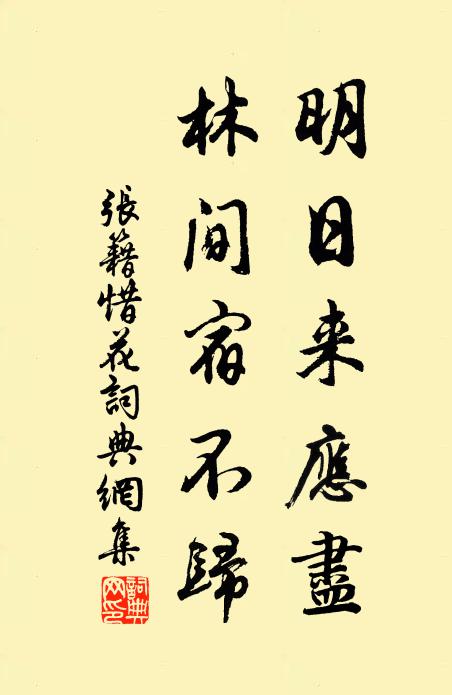 明日来應盡
林间宿不歸
張籍惜花詞典網集
詞典网印